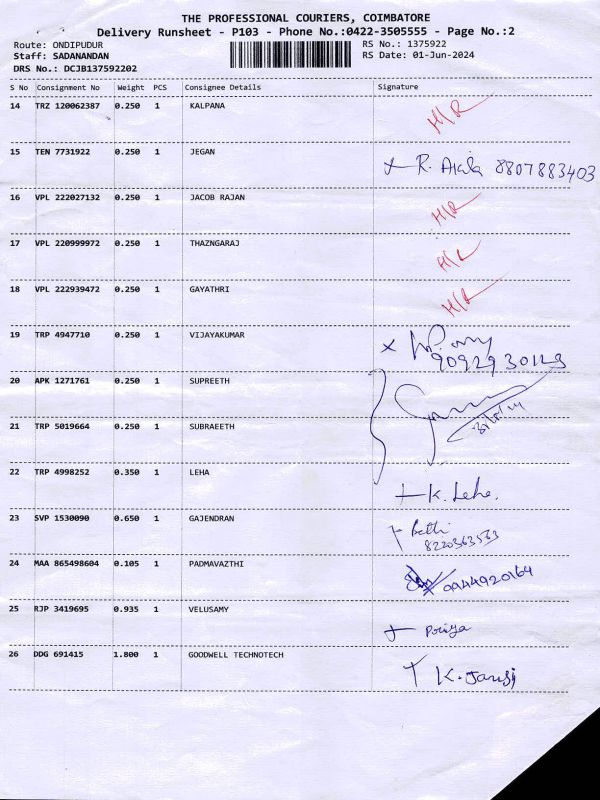 THE PROFESSIONAL COURIERS, COIMBATORE
Delivery Runsheet - P103 - Phone No.:0422-3505555 - Page No.:2
Route: ONDIPUDUR RS No.: 1375922
Staff: SADANANDAN RS Date: 01-Jun-2024
DRS No.: DCJB137592202
S No Consignment No Weight PCS Consignee Details Signature
14 TRZ 120062387 0.250 1 KALPANA H/R
15 TEN 7731922 0.250 1 JEGAN R. 8807883403
16 VPL 222027132 0.250 1 JACOB RAJAN H/R
17 VPL 220999972 0.250 1 THAZNGARAJ
18 VPL 222939472 0.250 1 GAYATHRI H/R
19 TRP 4947710 0.250 1 VIJAYAKUMAR
20 APK 1271761 0.250 1 SUPREETH
21 TRP 5019664 0.250 1 SUBRAEETH
22 TRP 4998252 0.350 1 LEHA K. Leha.
23 SVP 1530090 0.650 1 GAJENDRAN
8220363563
24 MAA 865498604 0.105 1 PADMAVAZTHI
25 RJP 3419695 0.935 1 VELUSAMY Poriya
26 DDG 691415 1.800 1 GOODWELL TECHNOTECH K. Jansi